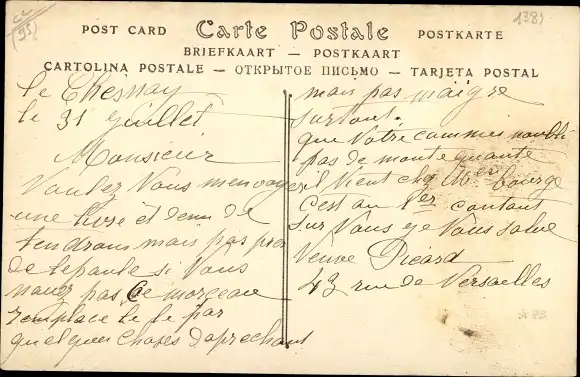 cc
(95)
138)
POST CARD Carte Postale POSTKARTE
BRIEFKAART — POSTKAART
CARTOLINA POSTALE — ОТКРЫТОЕ ПИСЬМО — TARJETA POSTAL
le Chesnay
le 31 juillet
Monsieur
Voulez Vous menvoyez
une livre et demi de
tendrons mais pas pres
de lepaule si Vous
navez pas ce morceau
remplace le le par
quelques Choses daprochant
mais pas maigre
surtout.
que Votre commis noubli
pas de monte quante
il Vient chez Mer bourge
Cest au 1er contant
sur Vous je Vous salue
Veuve Picard
43 rue de Versaelles